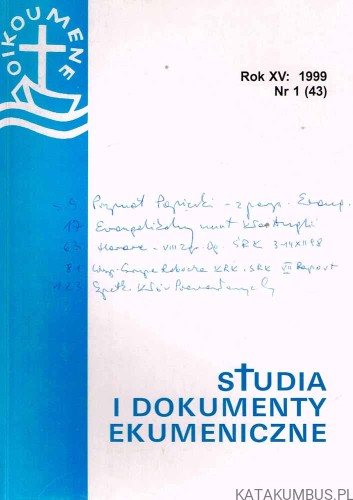 OIKOUMENE
Rok XV: 1999
Nr 1 (43)
Prymat Papieski - z persp. Ewang.
17 Evangelikalny nurt
69 Harare - VIII zgr. Og. ŚRK 3-14 XII 98
81 Wsp. Grupa Robocza KRK i ŚRK VII Raport
123
STUDIA
I DOKUMENTY
EKUMENICZNE
KATAKUMBUS.PL